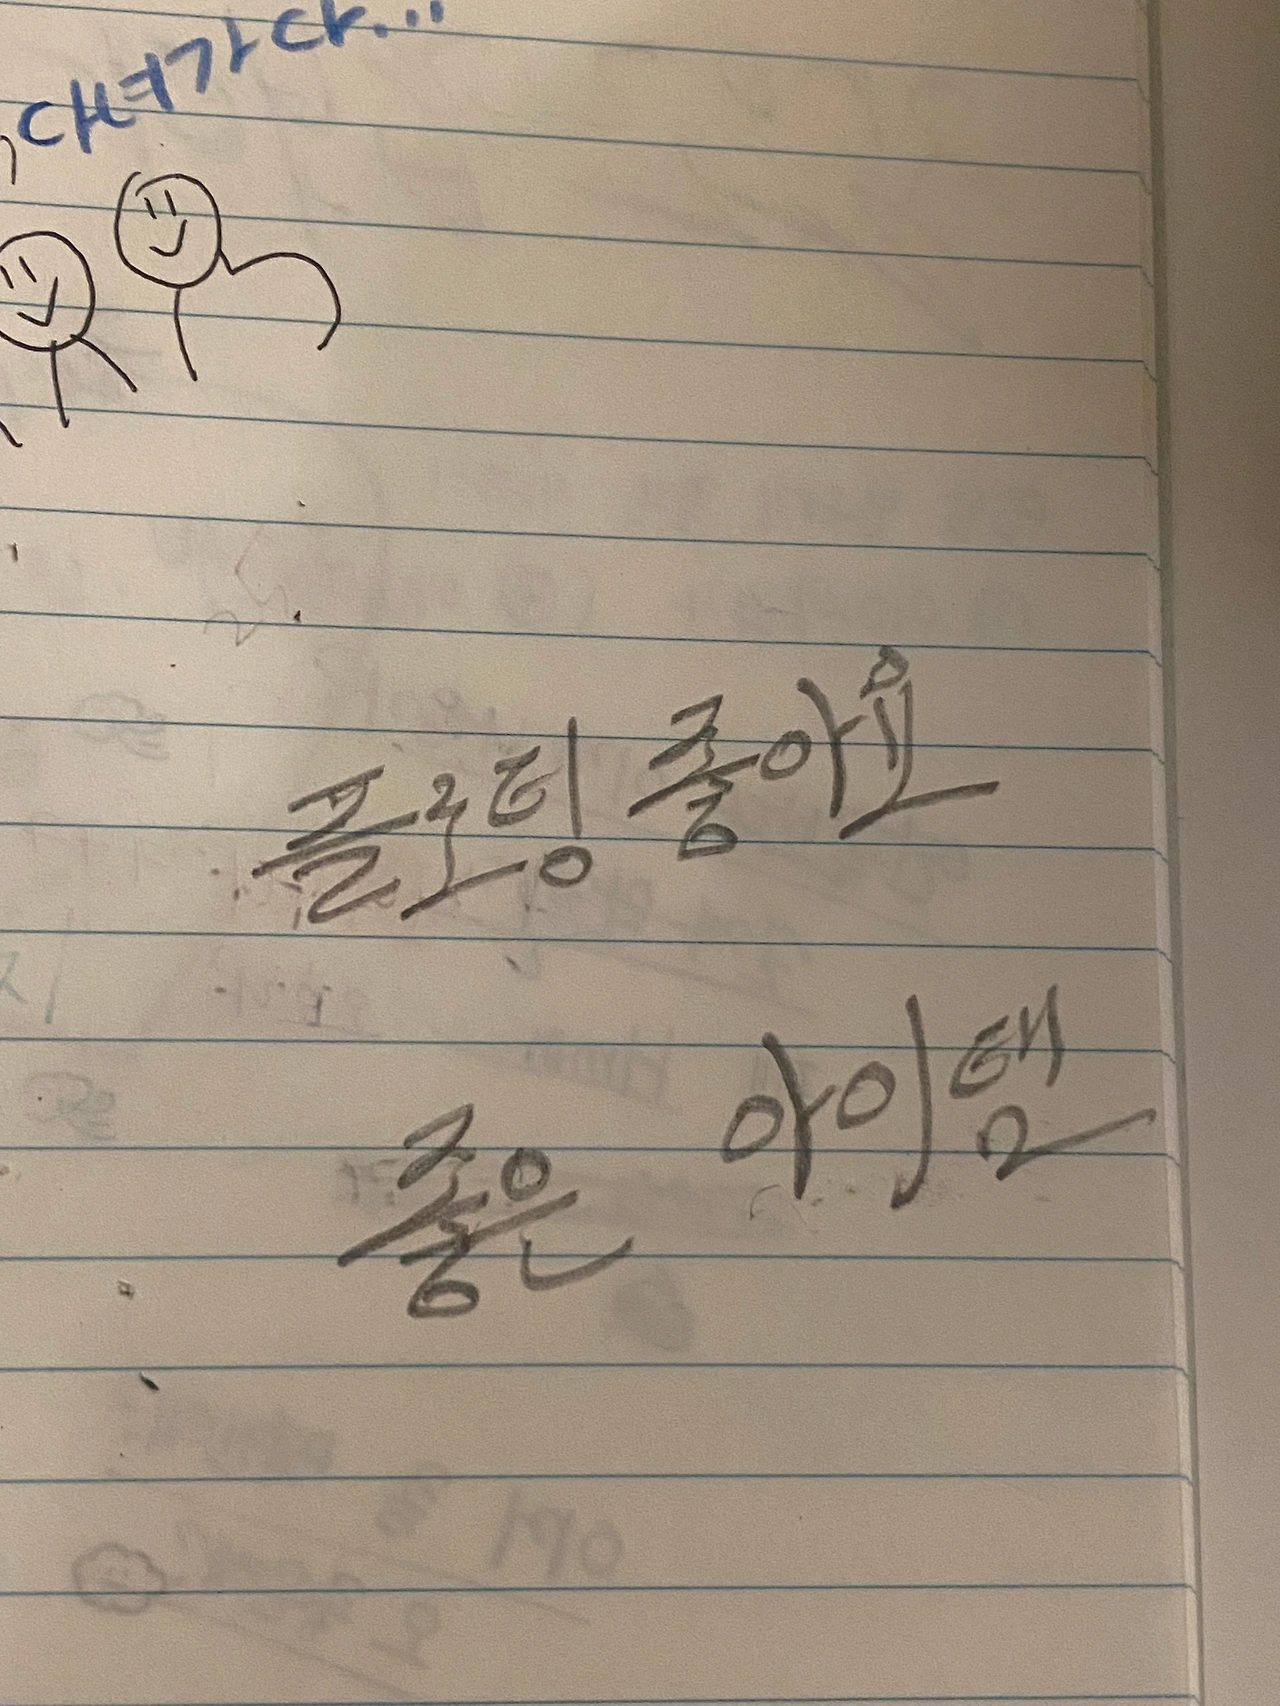 대박가다...
플로팅 좋아요
좋은 아이탬